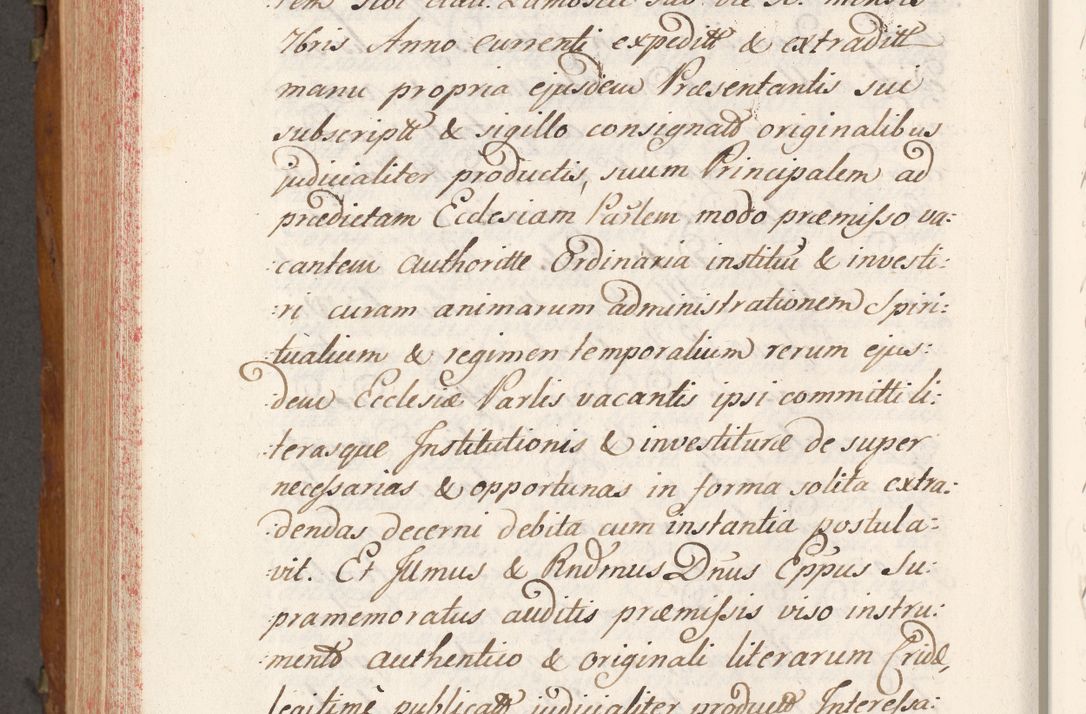 rem sibi dau. Zamoscii sub die X. mensis
7bris Anno currenti expeditt & extraditt
manu propria ejusdem Præsentantis sui
subscriptt & sigillo consignatt originalibus
judicialiter productis, suum Principalem ad
prædictam Ecclesiam Parlem modo præmisso va:
:cantem authoritte Ordinaria institui & investi:
:ri curam animarum administrationem Spiri:
:tualium & regimen temporalium rerum ejus:
:dem Ecclesiæ Parlis vacantis ipsi committi li:
:terasque Institutionis & investituræ de super
necessarias & opportunas in forma solita extra:
:dendas decerni debita cum instantia postula:
:vit. Et Jllmus & Rndmus Dnus Eppus Su:
pramemoratus auditis præmissis viso instru:
:mento authentico & originali literarum Cridæ,
legitimè publicatt judicialiter productt Interessa: